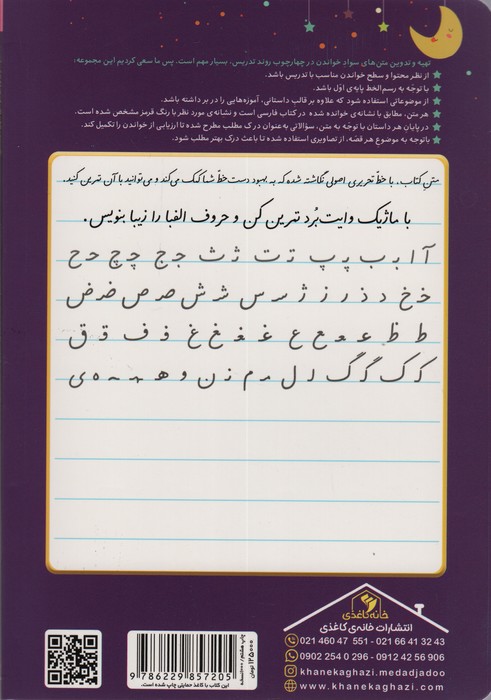 تهیه و تدوین متن‌های سواد خواندن در چهارچوب روند تدریس، بسیار مهم است. پس ما سعی کردیم این مجموعه:
از نظر محتوا و سطح خواندن مناسب با تدریس باشد.
با توجّه به رسم‌الخط پایه‌ی اوّل باشد.
از موضوعاتی استفاده شود که علاوه بر قالب داستانی، آموزه‌هایی را در بر داشته باشد.
هر متن، مطابق با نشانه‌ی خوانده شده در کتاب فارسی است و نشانه‌ی مورد نظر با رنگ قرمز مشخص شده است.
در پایان هر داستان با توجّه به متن، سؤالاتی به‌عنوان درک مطلب مطرح شده تا ارزیابی از خواندن را تکمیل کند.
باتوجه به موضوع هر قصّه، از تصاویری استفاده شده تا باعث درک بهتر مطلب شود.
متن کتاب، با خطّ تحریری اصولی نگاشته شده که به بهبود دست خطّ شما کمک می‌کند و می‌توانید با آن تمرین کنید.
با ماژیک وایت بُرد تمرین کن و حروف الفبا را زیبا بنویس.
آ ا بـ ب پـ پ تـ ت ثـ ث جـ ج چـ چ حـ ح
خـ خ د ذ ر ز ژ سـ س شـ ش صـ ص ضـ ض
ط ظ عـ ـعـ ـع ع غـ ـغـ ـغ غ فـ ف قـ ق
کـ ک گـ گ لـ ل مـ م نـ ن و هـ ـهـ ـه ه یـ ی
خانه کاغذی
انتشارات خانه‌ی کاغذی
021 460 47 551 - 021 66 41 32 43
0902 254 0 296 - 0912 42 56 906
khanekaghazi.medadjadoo
www.khanekaghazi.com
9 786229 857205
این کتاب با کاغذ حمایتی چاپ شده است.